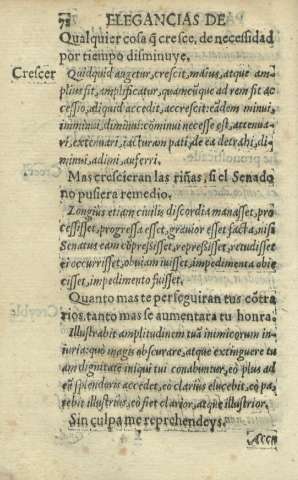 78 ELEGANCIAS DE
Qualquier cosa q̃ cresce, de necessidad
por tiempo disminuye.
Crescer Quidquid augetur, crescit, maius, atque am-
plius fit, amplificatur, quancũque ad rem fit ac
cessio, aliquid accedit, accrescit: eãdem minui,
imminui, diminui: cõminui necesse est, attenua-
ri, extenuari, iacturam pati, de ea detrahi, di-
minui, adimi, auferri.
Mas crescieran las riñas, si el Senado
no pusiera remedio.
Longius etiam ciuilis discordia manasset, pro
cessisset, progressa esset, grauior esset facta, nisi
Senatus eam cõpressisset, repressisset, retudisset
ei occurrisset, obuiam iuisset, impedimenta obie
cisset, impedimento fuisset.
Quanto mas te perseguiran tus cõtra
rios, tanto mas se aumentara tu honra.
Illustrabit amplitudinem tuã inimicorum in-
iuria: quo magis obscurare, atque extinguere tu
am dignitatẽ iniqui tui conabuntur, eò plus ad
eã splendoris accedet, eò clarius elucebit, eò pa-
rebit illustrius, eò fiet clarior, atque illustrior.
Sin culpa me reprehendeys.